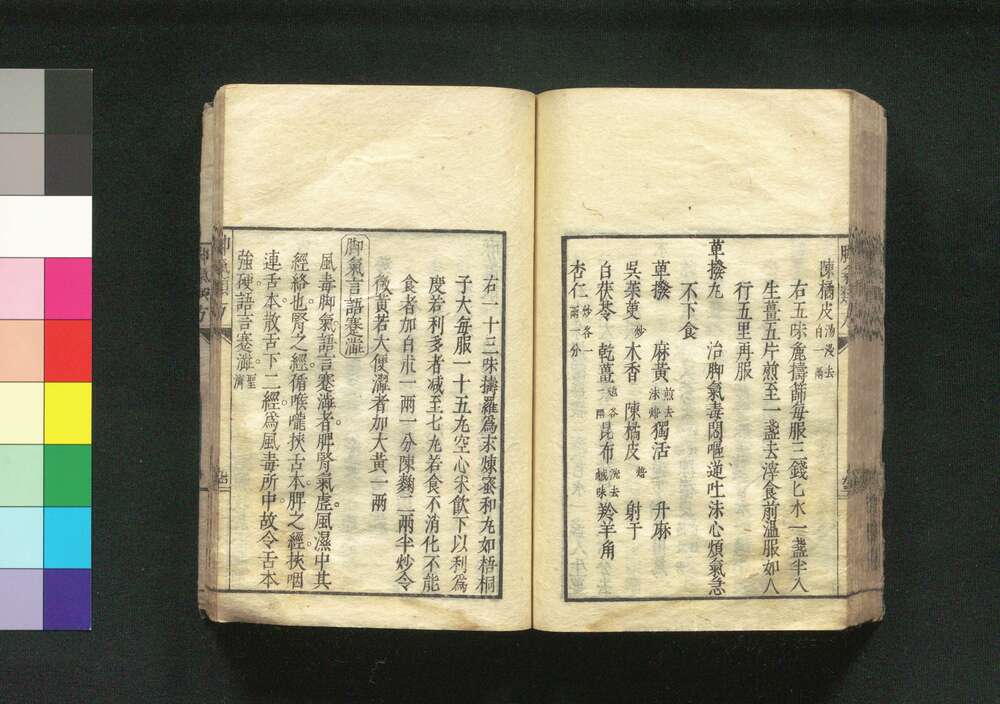 陳橘皮湯浸去白一兩
右五味麁擣篩毎服三錢匕水一盞半入
生薑五片煎至一盞去滓食前溫服如人
行五里再服
蓽撥丸　治脚氣毒悶嘔逆吐沫心煩氣急
不下食
蓽撥　麻黃煎去沫焙　獨活　升麻
吳茱萸炒　木香　陳橘皮焙　射干
白茯苓　乾薑各一兩　昆布洗去鹹味　羚羊角
杏仁炒各一兩一分
右一十三味擣羅爲末煉蜜和丸如梧桐
子大毎服一十五丸空心米飲下以利爲
度若利多者减至七丸若食不消化不能
食者加白朮一兩一分陳麴二兩半炒令
微黃若大便澀者加大黃一兩
脚氣言語蹇澀
風毒脚氣語言蹇澁者脾腎氣虛風濕中其
經絡也腎之經循喉嚨挾舌本脾之經挾咽
連舌本散舌下二經爲風毒所中故令舌本
強硬語言蹇澁聖濟